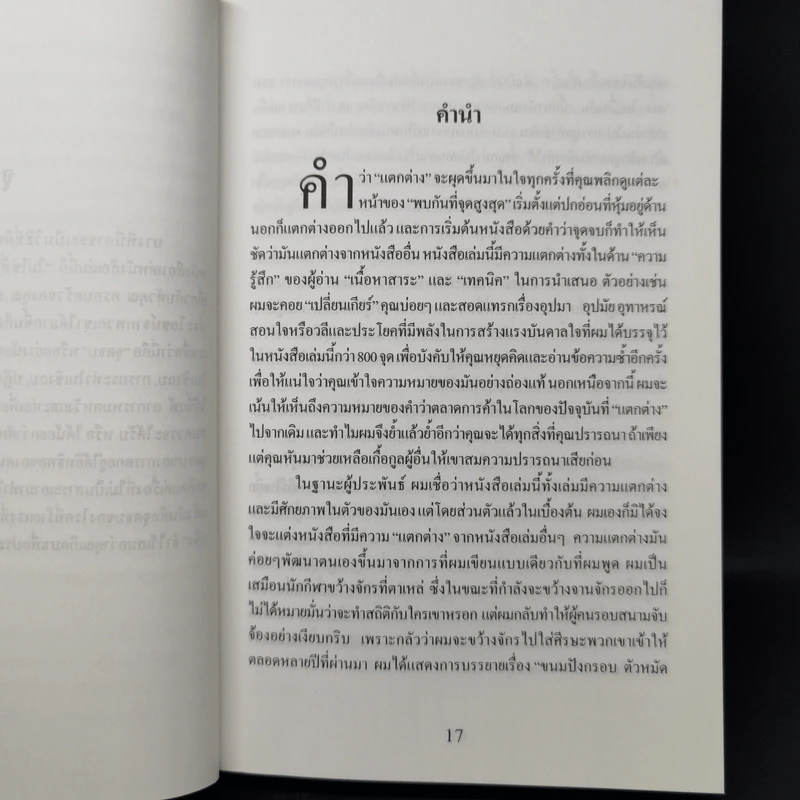 คำนำ
คำว่า “แตกต่าง” จะผุดขึ้นมาในใจทุกครั้งที่คุณพลิกดูแต่ละ
หน้าของ “พบกันที่จุดสูงสุด” เริ่มตั้งแต่ปกอ่อนที่หุ้มอยู่ด้าน
นอกก็แตกต่างออกไปแล้ว และการเริ่มต้นหนังสือด้วยคำว่าจุดจบก็ทำให้เห็น
ชัดว่ามันแตกต่างจากหนังสืออื่น หนังสือเล่มนี้มีความแตกต่างทั้งในด้าน “ความ
รู้สึก” ของผู้อ่าน “เนื้อหาสาระ” และ “เทคนิค” ในการนำเสนอ ตัวอย่างเช่น
ผมจะคอย “เปลี่ยนเกียร์” คุณบ่อยๆ และสอดแทรกเรื่องอุปมา อุปมัย อุทาหรณ์
สอนใจหรือวลีและประโยคที่มีพลังในการสร้างแรงบันดาลใจที่ผมได้บรรจุไว้
ในหนังสือเล่มนี้กว่า 800 จุด เพื่อบังคับให้คุณหยุดคิดและอ่านข้อความซ้ำอีกครั้ง
เพื่อให้แน่ใจว่าคุณเข้าใจความหมายของมันอย่างถ่องแท้ นอกเหนือจากนี้ ผมจะ
เน้นให้เห็นถึงความหมายของคำว่าตลาดการค้าในโลกของปัจจุบันที่ “แตกต่าง”
ไปจากเดิม และทำไมผมจึงย้ำแล้วย้ำอีกว่าคุณจะได้ทุกสิ่งที่คุณปรารถนา ถ้าเพียง
แต่คุณหันมาช่วยเหลือเกื้อกูลผู้อื่นให้เขาสมความปรารถนาเสียก่อน
ในฐานะผู้ประพันธ์ ผมเชื่อว่าหนังสือเล่มนี้ทั้งเล่มมีความแตกต่าง
และมีศักยภาพในตัวของมันเอง แต่โดยส่วนตัวแล้วในเบื้องต้น ผมเองก็มิได้จง
ใจจะแต่งหนังสือที่มีความ “แตกต่าง” จากหนังสือเล่มอื่นๆ ความแตกต่างมัน
ค่อยๆ พัฒนาตนเองขึ้นมาจากการที่ผมเขียนแบบเดียวกับที่ผมพูด ผมเป็น
เสมือนนักกีฬาขว้างจักรที่ตาเหล่ ซึ่งในขณะที่กำลังจะขว้างจานจักรออกไปก็
ไม่ได้หมายมั่นว่าจะทำสถิติกับใครเขาหรอก แต่ผมกลับทำให้ผู้คนรอบสนามจับ
จ้องอย่างเงียบกริบ เพราะกลัวว่าผมจะขว้างจักรไปใส่ศีรษะพวกเขาเข้าให้
ตลอดหลายปีที่ผ่านมา ผมได้แสดงการบรรยายเรื่อง “ขนมปังกรอบ ตัวหมัด
17